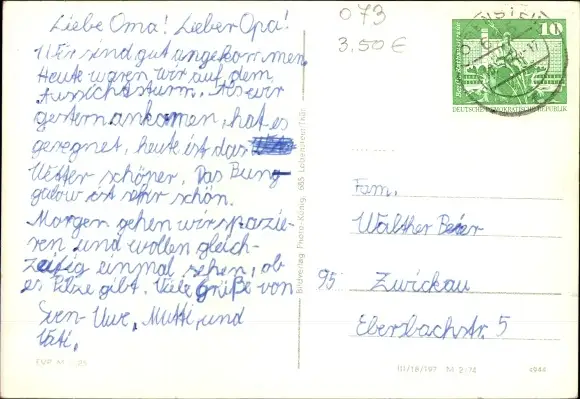 Liebe Oma! Lieber Opa!
Wir sind gut angekommen.
Heute waren wir auf dem
Aussichtsturm. Als wir
gestern ankamen, hat es
geregnet, heute ist das
Wetter schöner. Das Bung-
galow ist sehr schön.
Morgen gehen wir spazie-
ren und wollen gleich-
zeitig einmal sehen, ob
es Pilze gibt. Viele Grüße von
Sven-Uwe, Mutti, und
Vati.
EVP M -,25
Bildverlag Photo-König, 685 Lobenstein/Thür.
073
3,50 €
10
DEUTSCHE DEMOKRATISCHE REPUBLIK
Fam.
Walther Beier
95 Zwickau
Ebersbachstr. 5
III/18/197 M 2/74
4944